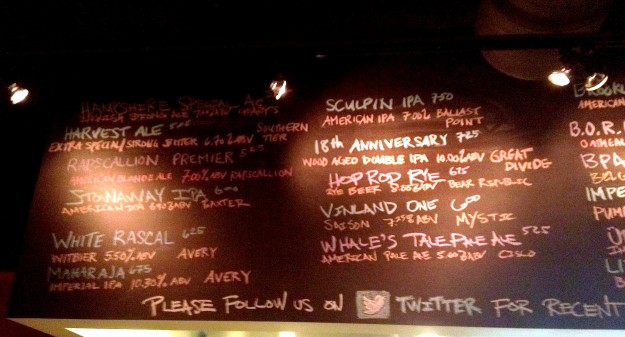 HAMPSHIRE SPECIAL ALE
HARVEST ALE SOUTHERN
EXTRA SPECIAL/STRONG BITTER 6.70% ABV TIER
RAPSCALLION PREMIER 525
AMERICAN BLONDE ALE 7.00% ABV RAPSCALLION
STOWAWAY IPA 600
AMERICAN IPA 6.90% ABV BAXTER
WHITE RASCAL 625
WITBIER 5.50% ABV AVERY
MAHARAJA 675
IMPERIAL IPA 10.30% ABV AVERY
SCULPIN IPA 750
AMERICAN IPA 7.00% BALLAST
POINT
18th ANNIVERSARY 725
WOOD AGED DOUBLE IPA 10.00% ABV GREAT
DIVIDE
HOP ROD RYE 675
RYE BEER 8.00% ABV BEAR REPUBLIC
VINLAND ONE 600
SAISON ABV MYSTIC
WHALE'S TALE PALE ALE 525
AMERICAN PALE ALE 5.60% ABV CISCO
AMERICAN
B.O.R.
OATMEA
BPA
BELG
IMPE
PUM
LI
PLEASE FOLLOW US ON TWITTER FOR RECENT